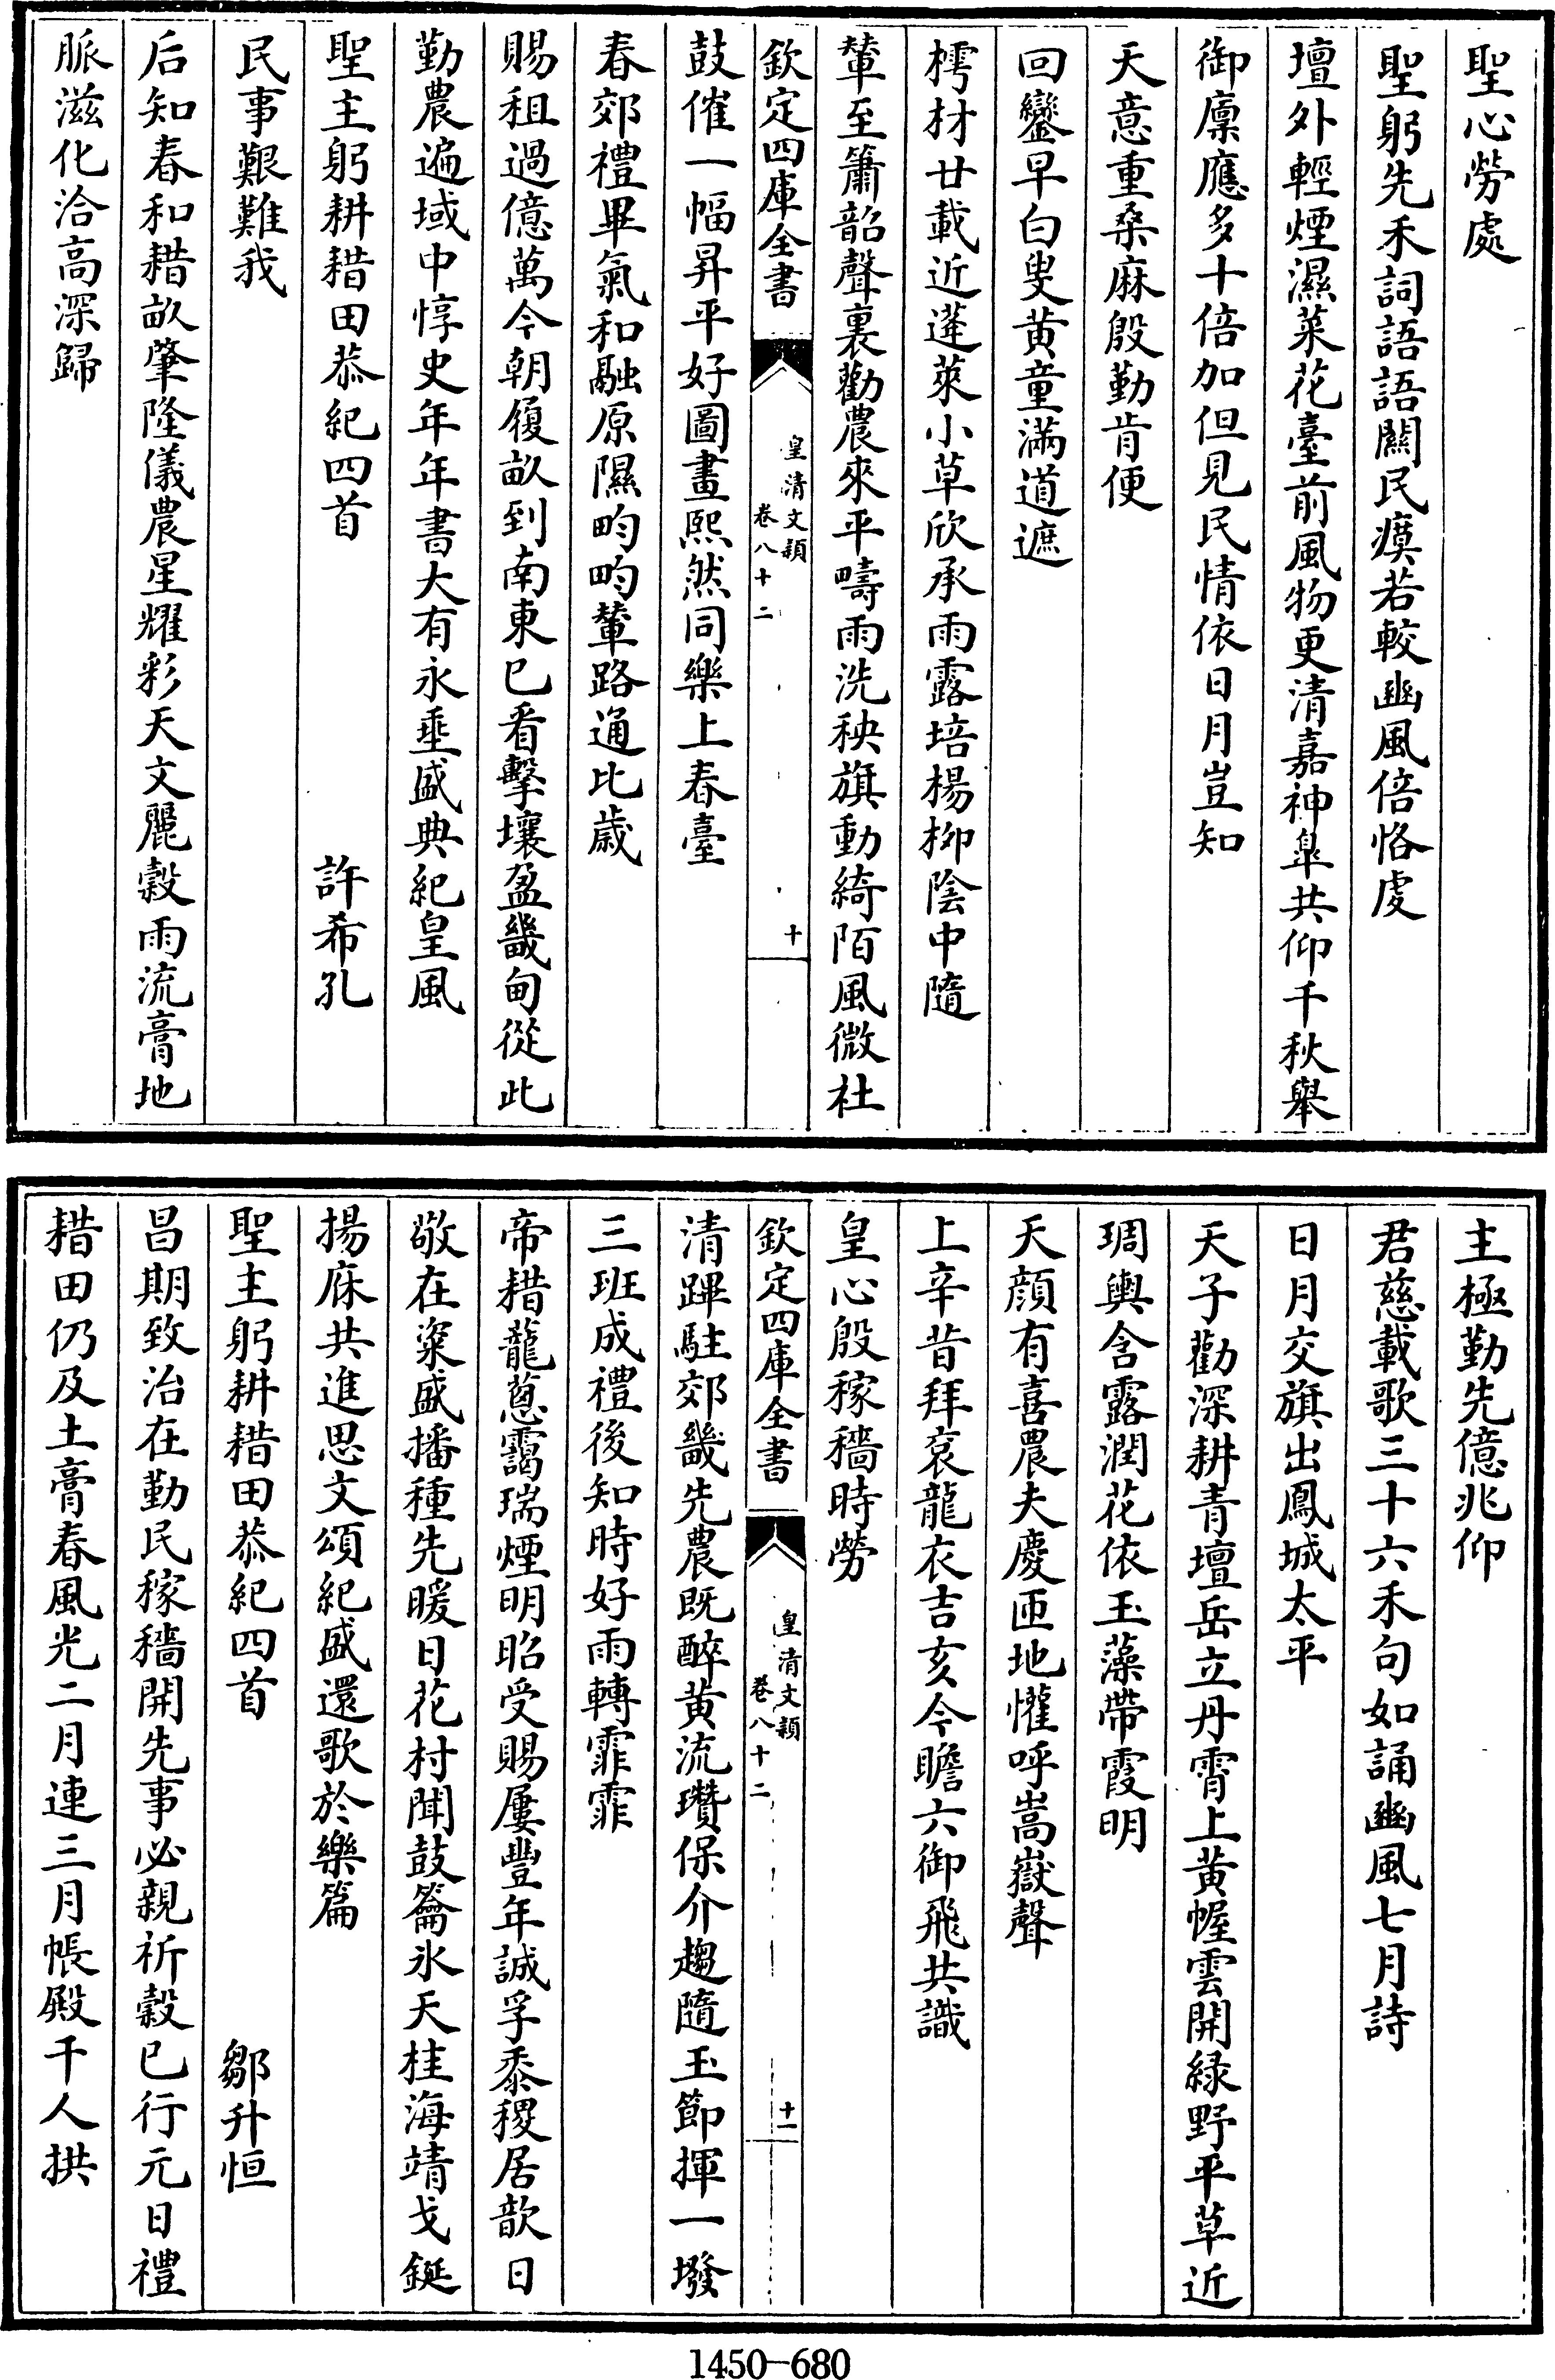 聖心勞處
聖躬先禾詞語語關民瘼若較豳風倍恪虔
壇外輕煙濕菜花臺前風物更清嘉神臯共仰千秋舉
御廩應多十倍加但見民情依日月豈知
天意重桑麻殷勤肯便
回鑾早白叟黃童滿道遮
樗材廿載近蓬萊小草欣承雨露培楊柳陰中隨
輦至簫韶聲裏勸農來平疇雨洗秧旗動綺陌風微社
欽定四庫全書
皇清文穎
卷八十二
十
鼓催一幅昇平好圖畫熙然同樂上春臺
春郊禮畢氣和融原隰畇畇輦路通比歲
賜租過億萬今朝履畝到南東已看擊壤盈畿甸從此
勤農遍域中惇史年年書大有永垂盛典紀皇風
聖主躬耕耤田恭紀四首 許希孔
民事艱難我
后知春和耤畝肇隆儀農星耀彩天文麗穀雨流膏地
脈滋化洽高深歸
主極勤先億兆仰
君慈載歌三十六禾句如誦豳風七月詩
日月交旗出鳳城太平
天子勸深耕青壇岳立丹霄上黃幄雲開綠野平草近
琱輿含露潤花依玉藻帶霞明
天顔有喜農夫慶匝地懽呼嵩嶽聲
上辛昔拜袞龍衣吉亥今瞻六御飛共識
皇心殷稼穡時勞
欽定四庫全書
皇清文穎
卷八十二
十一
清蹕駐郊畿先農既醉黃流瓚保介趨隨玉節揮一墢
三班成禮後知時好雨轉霏霏
帝耤蘢蔥靄瑞煙明昭受賜屢豐年誠孚黍稷居歆日
敬在粢盛播種先暖日花村聞鼓籥氷天桂海靖戈鋋
揚庥共進思文頌紀盛還歌於樂篇
聖主躬耕耤田恭紀四首 鄒升恒
昌期致治在勤民稼穡開先事必親祈穀已行元日禮
耤田仍及土膏春風光二月連三月帳殿千人拱
1450-680